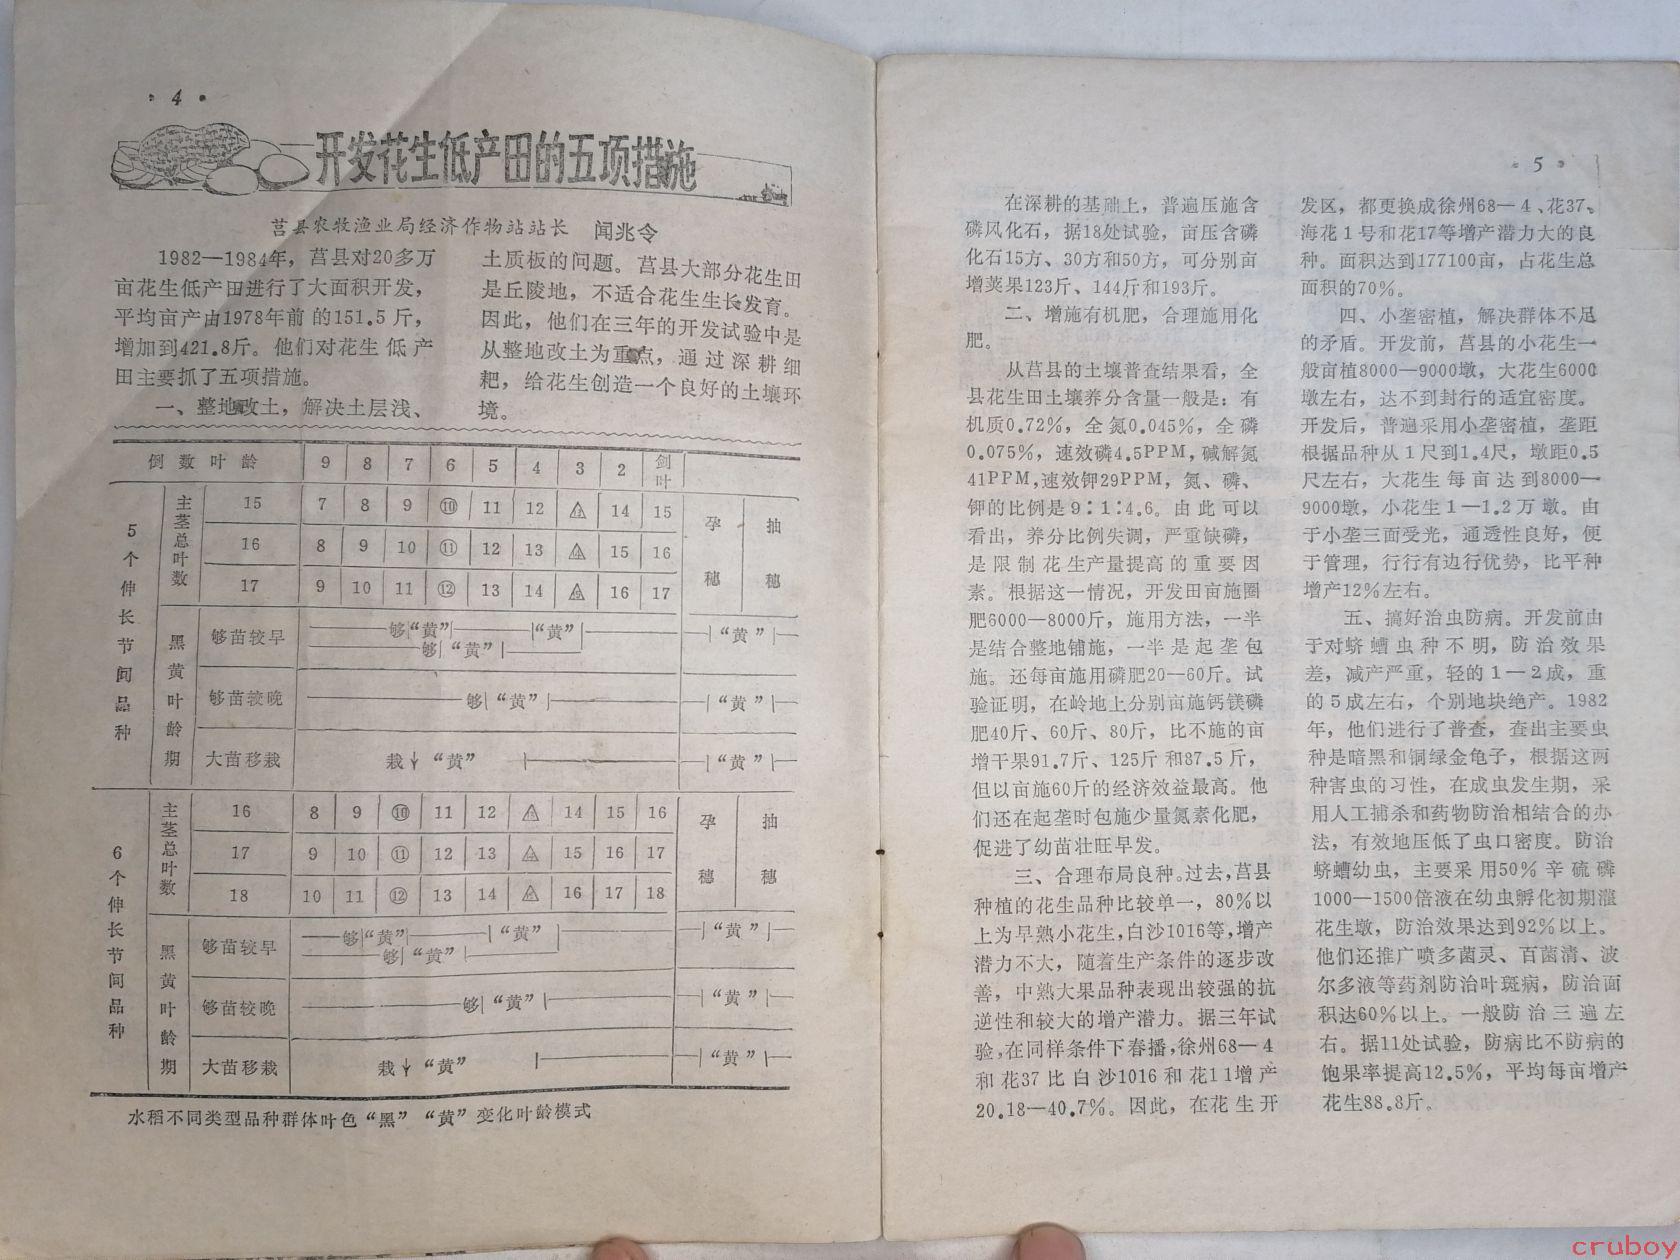 · 4 ·
开发花生低产田的五项措施
莒县农牧渔业局经济作物站站长 闻兆令
1982—1984年，莒县对20多万
亩花生低产田进行了大面积开发，
平均亩产由1978年前的151.5斤，
增加到421.8斤。他们对花生低产
田主要抓了五项措施。
一、整地改土，解决土层浅、
土质板的问题。莒县大部分花生田
是丘陵地，不适合花生生长发育。
因此，他们在三年的开发试验中是
从整地改土为重点，通过深耕细
耙，给花生创造一个良好的土壤环
境。
倒数叶龄 9 8 7 6 5 4 3 2 剑叶
5个伸长节间品种
主茎总叶数
15 7 8 9 ⑩ 11 12 14 15
16 8 9 10 ⑪ 12 13 15 16
17 9 10 11 ⑫ 13 14 16 17
孕穗 抽穗
黑黄叶龄期
够苗较早 够“黄” “黄” “黄”
够“黄”
够苗较晚 够“黄” “黄”
大苗移栽 栽“黄” “黄”
6个伸长节间品种
主茎总叶数
16 8 9 ⑩ 11 12 14 15 16
17 9 10 ⑪ 12 13 15 16 17
18 10 11 ⑫ 13 14 16 17 18
孕穗 抽穗
黑黄叶龄期
够苗较早 够“黄” “黄” “黄”
够“黄”
够苗较晚 够“黄” “黄”
大苗移栽 栽“黄” “黄”
水稻不同类型品种群体叶色“黑”“黄”变化叶龄模式
· 5 ·
在深耕的基础上，普遍压施含
磷风化石，据18处试验，亩压含磷
化石15方、30方和50方，可分别亩
增荚果123斤、144斤和193斤。
二、增施有机肥，合理施用化
肥。
从莒县的土壤普查结果看，全
县花生田土壤养分含量一般是：有
机质0.72%，全氮0.045%，全磷
0.075%，速效磷4.5PPM，碱解氮
41PPM，速效钾29PPM，氮、磷、
钾的比例是9：1：4.6。由此可以
看出，养分比例失调，严重缺磷，
是限制花生产量提高的重要因
素。根据这一情况，开发田亩施圈
肥6000—8000斤，施用方法，一半
是结合整地铺施，一半是起垄包
施。还每亩施用磷肥20—60斤。试
验证明，在岭地上分别亩施钙镁磷
肥40斤、60斤、80斤，比不施的亩
增干果91.7斤、125斤和87.5斤，
但以亩施60斤的经济效益最高。他
们还在起垄时包施少量氮素化肥，
促进了幼苗壮旺早发。
三、合理布局良种。过去，莒县
种植的花生品种比较单一，80%以
上为早熟小花生，白沙1016等，增产
潜力不大，随着生产条件的逐步改
善，中熟大果品种表现出较强的抗
逆性和较大的增产潜力。据三年试
验，在同样条件下春播，徐州68—4
和花37比白沙1016和花11增产
20.18—40.7%。因此，在花生开
发区，都更换成徐州68—4、花37、
海花1号和花17等增产潜力大的良
种。面积达到177100亩，占花生总
面积的70%。
四、小垄密植，解决群体不足
的矛盾。开发前，莒县的小花生一
般亩植8000—9000墩，大花生6000
墩左右，达不到封行的适宜密度。
开发后，普遍采用小垄密植，垄距
根据品种从1尺到1.4尺，墩距0.5
尺左右，大花生每亩达到8000—
9000墩，小花生1—1.2万墩。由
于小垄三面受光，通透性良好，便
于管理，行行有边行优势，比平种
增产12%左右。
五、搞好治虫防病。开发前由
于对蛴螬虫种不明，防治效果
差，减产严重，轻的1—2成，重
的5成左右，个别地块绝产。1982
年，他们进行了普查，查出主要虫
种是暗黑和铜绿金龟子，根据这两
种害虫的习性，在成虫发生期，采
用人工捕杀和药物防治相结合的办
法，有效地压低了虫口密度。防治
蛴螬幼虫，主要采用50%辛硫磷
1000—1500倍液在幼虫孵化初期灌
花生墩，防治效果达到92%以上。
他们还推广喷多菌灵、百菌清、波
尔多液等药剂防治叶斑病，防治面
积达60%以上。一般防治三遍左
右。据11处试验，防病比不防病的
饱果率提高12.5%，平均每亩增产
花生88.8斤。
cruboy